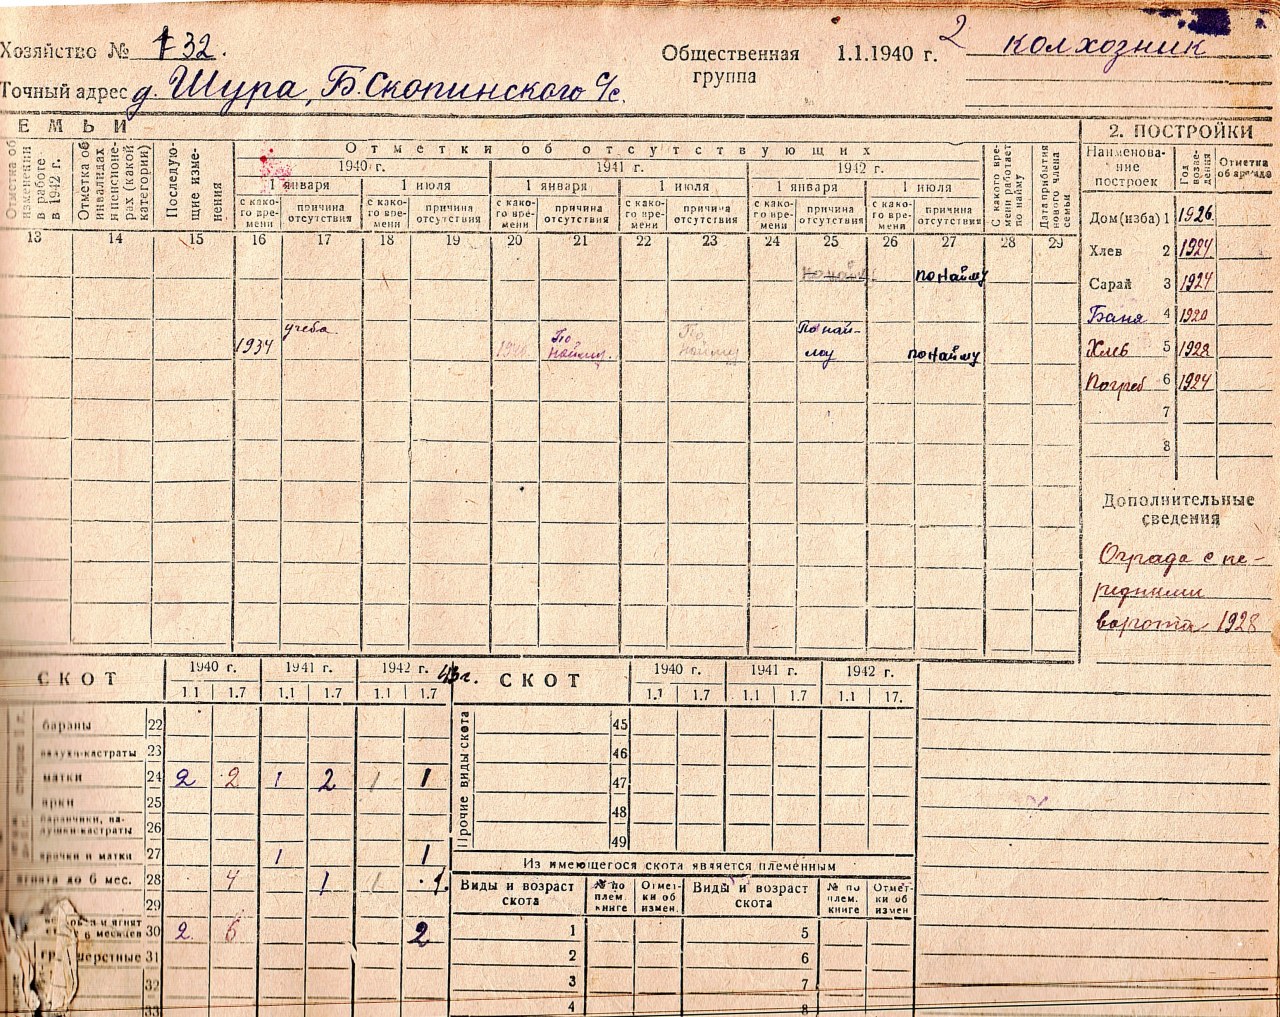 Хозяйство № 32.
Общественная группа 1.1.1940 г. 2 колхозник
Точный адрес д. Шура, Б. Скопинского С/с.
ЕМЬИ
Отметка об изменении в работе в 1942 г.
Отметка об инвалидах и пенсионерах (какой категории)
Последующие изменения
Отметки об отсутствующих
1940 г. 1941 г. 1942 г.
1 января 1 июля 1 января 1 июля 1 января 1 июля
с какого времени причина отсутствия с какого времени причина отсутствия с какого времени причина отсутствия с какого времени причина отсутствия с какого времени причина отсутствия с какого времени причина отсутствия
С какого времени работает по найму
Дата прибытия нового члена семьи
13 14 15 16 17 18 19 20 21 22 23 24 25 26 27 28 29
по найму по найму
1934 учеба 1940 По найму. По найму По найму по найму
2. ПОСТРОЙКИ
Наименование построек Год возведения Отметка об аренде
Дом (изба) 1 1926
Хлев 2 1924
Сарай 3 1924
Баня 4 1920
Хлев 5 1928
Погреб 6 1924
7
8
Дополнительные
сведения
Ограда с пе-
редними
ворота 1928
СКОТ 1940 г. 1941 г. 1942 г. 43 г.
1.1 1.7 1.1 1.7 1.1 1.7
бараны 22
валухи-кастраты 23
матки 24 2 2 1 2 1 1
ярки 25
баранчики, валушки-кастраты 26
ярочки и матки 27 1 1
ягнята до 6 мес. 28 4 1 1 1.
29
30 2 6 2
31
32
33
СКОТ 1940 г. 1941 г. 1942 г.
1.1 1.7 1.1 1.7 1.1 17.
Прочие виды скота
45
46
47
48
49
Из имеющегося скота является племенным
Виды и возраст скота № по плем. книге Отметки об измен. Виды и возраст скота № по плем. книге Отметки об измен
1 5
2 6
3 7
4 8